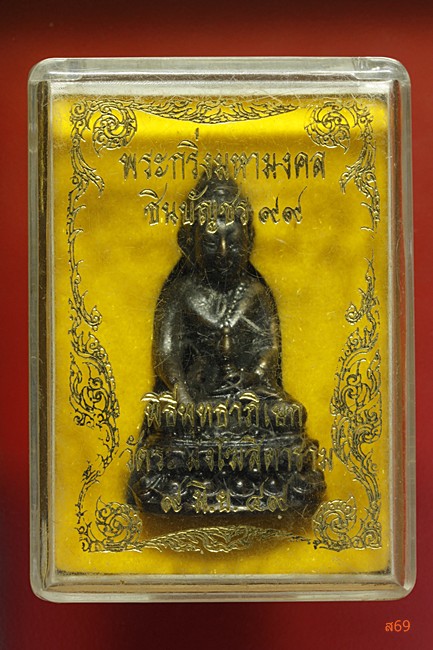 พระกริ่งมหามงคล
ชินบัญชร ๙๙
พิธีพุทธาภิเษก
วัดระฆังโฆสิตาราม
๙ มิ.ย. ๔๙
ส69